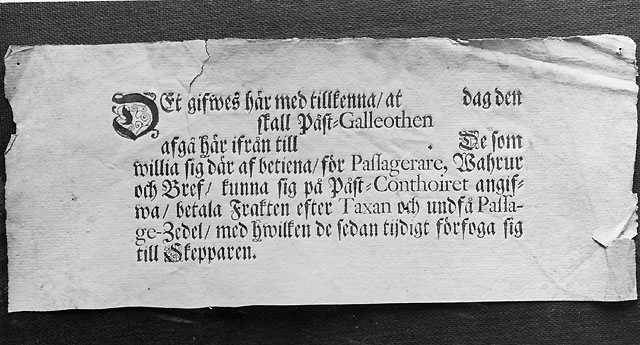 DEt gifwes här med tillkenna/ at dag den
skall Påst-Galleothen
afgå här ifrån till . De som
willia sig där af betiena/ för Passagerare, Wahrur
och Bref/ kunna sig på Påst-Conthoiret angif-
wa/ betala Frakten efter Taxan och undfå Passa-
ge-Zedel/ med hwilken de sedan tijdigt förfoga sig
till Skepparen.